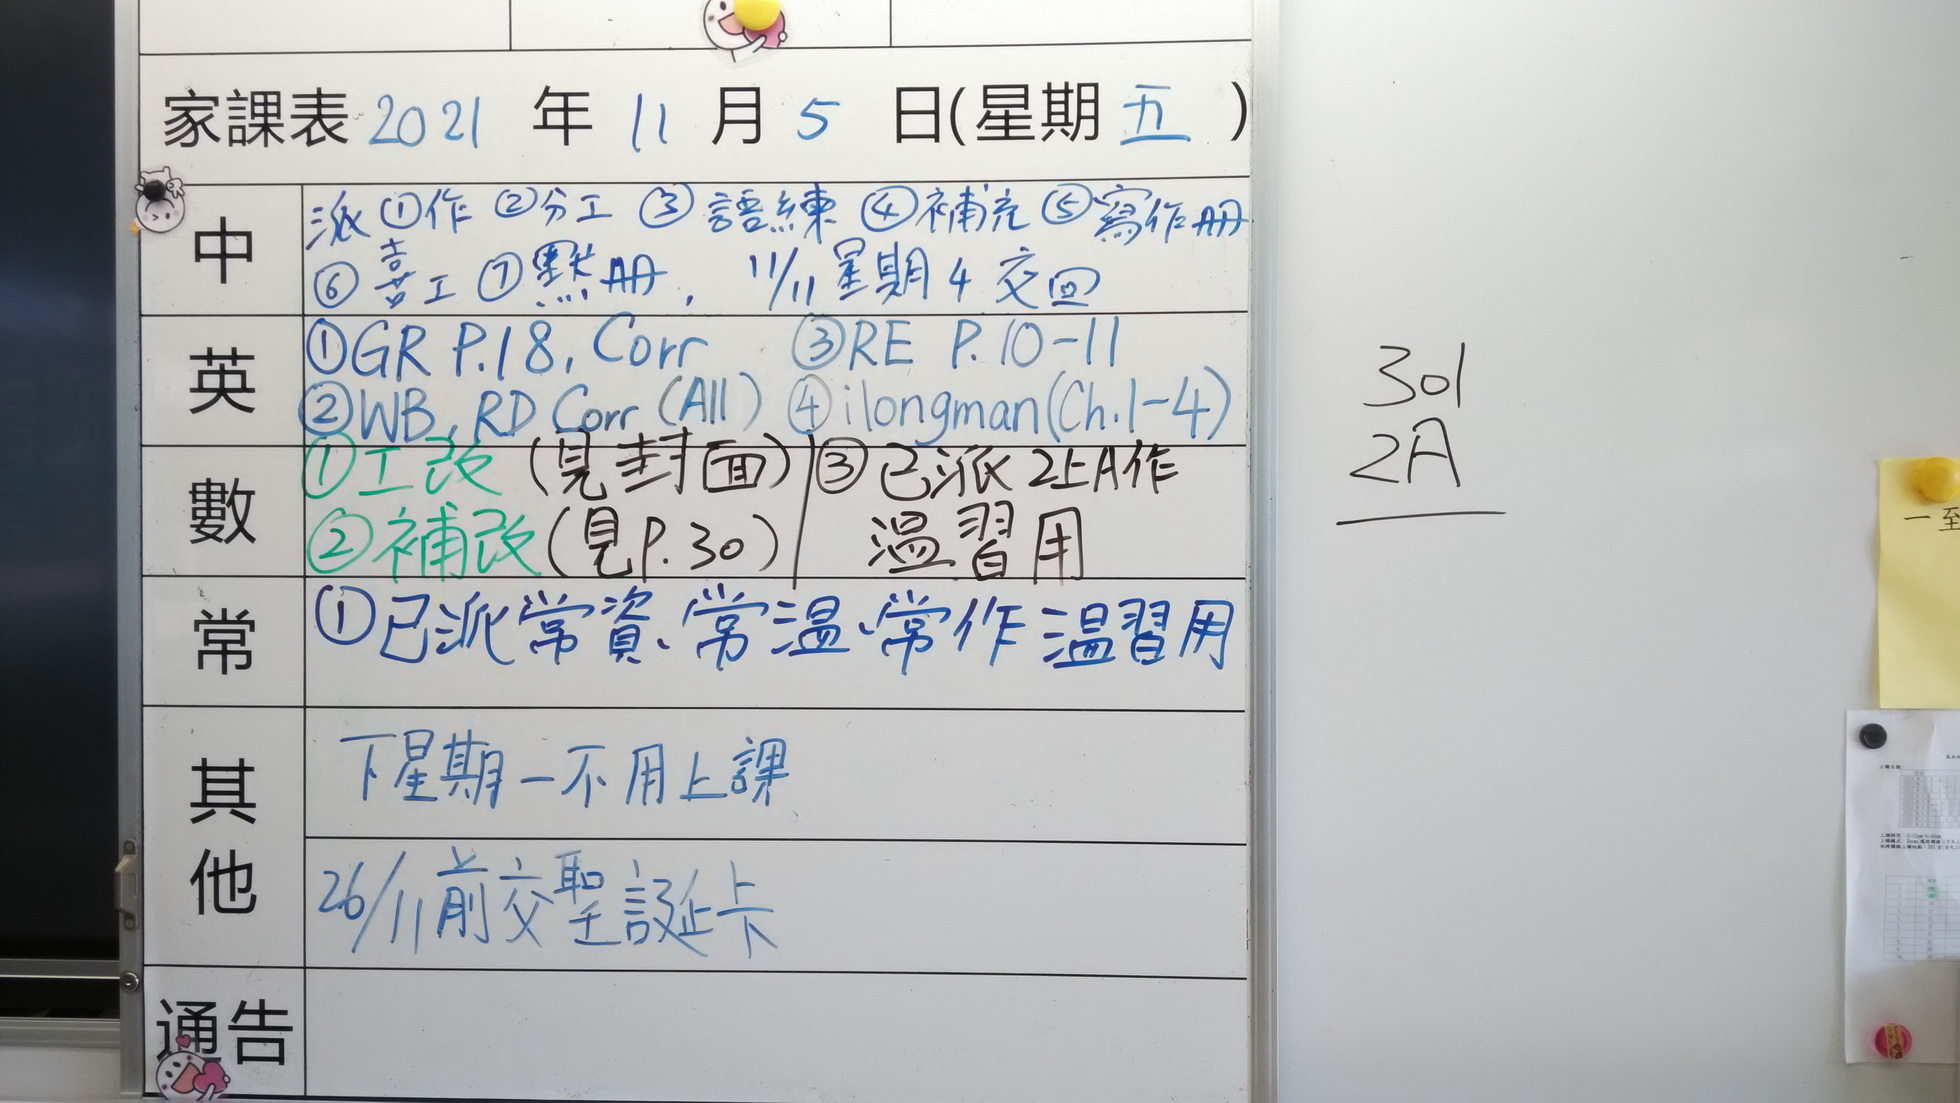 家課表 2021 年 11 月 5 日(星期 五 )
中
派 ①作 ②分工 ③語練 ④補充 ⑤寫作冊
⑥喜工 ⑦默冊, 11/11 星期4 交回
英
①GR P.18, Corr ③RE P.10-11
②WB, RD Corr (All) ④ilongman(Ch.1-4)
數
①工改 (見封面) ③已派2上A作
②補改(見P.30) 溫習用
常
①已派常資、常溫、常作溫習用
其他
下星期一不用上課
26/11前交聖誕卡
通告
301
2A
一至